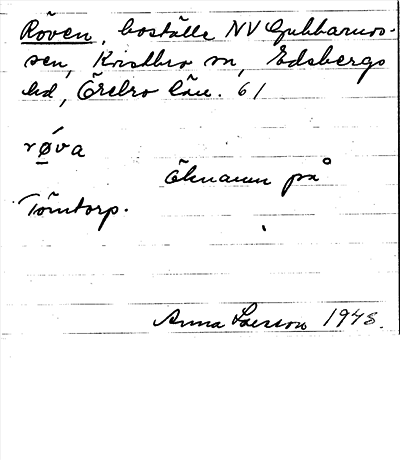 Röven, boställe NV Gubbamos-
sen, Kvistbro sn, Edsbergs
hd, Örebro län. 61
rǿva
Öknamn på
Tomtorp.
Anna Larsson 1948.